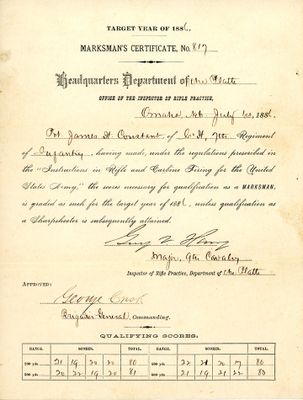 TARGET YEAR OF 1886.
MARKSMAN'S CERTIFICATE, No. 817
Headquarters Department of the Platte
OFFICE OF THE INSPECTOR OF RIFLE PRACTICE,
Omaha, Neb. July 1886.
Pvt. James H. Constant of Co. H, 7th Regiment
of Infantry, having made, under the regulations prescribed in
the "Instructions in Rifle and Carbine Firing for the United
States Army," the scores necessary for qualification as a MARKSMAN,
is graded as such for the target year of 1886, unless qualification as
a Sharpshooter is subsequently attained.
Guy V. Henry
Major, 9th Cavalry
Inspector of Rifle Practice, Department of the Platte
APPROVED:
George Crook
Brigadier General, Commanding.
QUALIFYING SCORES:
RANGE. SCORES. TOTAL. RANGE. SCORES. TOTAL.
21 19 20 20 80 22 21 20 17 80
20 22 19 20 81 21 19 21 22 80